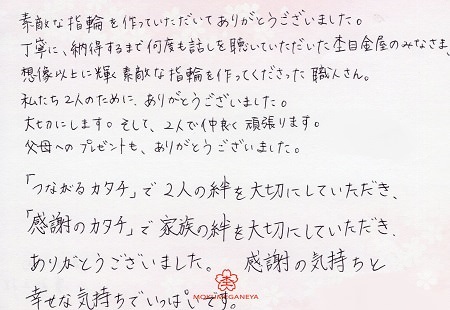 素敵な指輪を作っていただいてありがとうございました。
丁寧に、納得するまで何度も話しを聴いていただいた杢目金屋のみなさま、
想像以上に輝く素敵な指輪を作ってくださった職人さん。
私たち2人のために、ありがとうございました。
大切にします。そして、2人で仲良く頑張ります。
父母へのプレゼントも、ありがとうございました。
「つながるカタチ」で2人の絆を大切にしていただき、
「感謝のカタチ」で家族の絆を大切にしていただき、
ありがとうございました。 感謝の気持ちと
幸せな気持ちでいっぱいです。
MOKUMEGANEYA